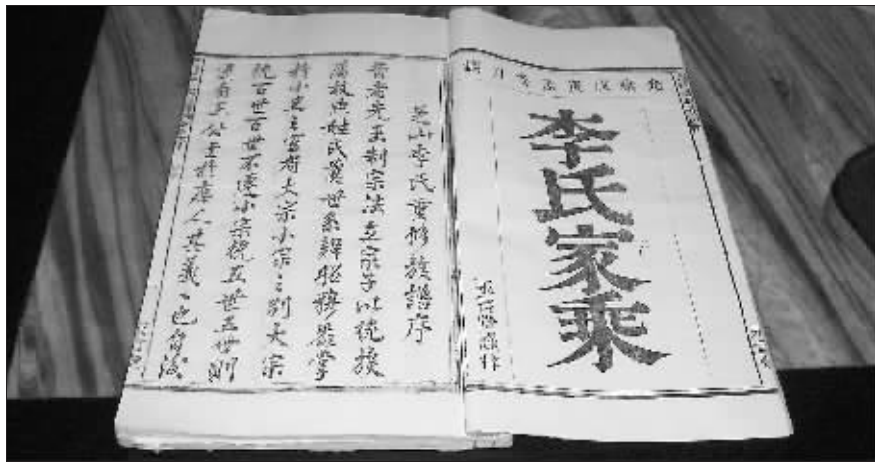 光緒戊戌孟冬月鐫
李氏家乘
芝山李氏重修族譜序
昔者先王制宗法立宗子以統族
屬故凡姓氏奠世系辨昭穆悉掌
於小史之官有大宗小宗之別大宗
統百世百世不遷小宗統五世五世則
遷自王公至於庶人其義一也